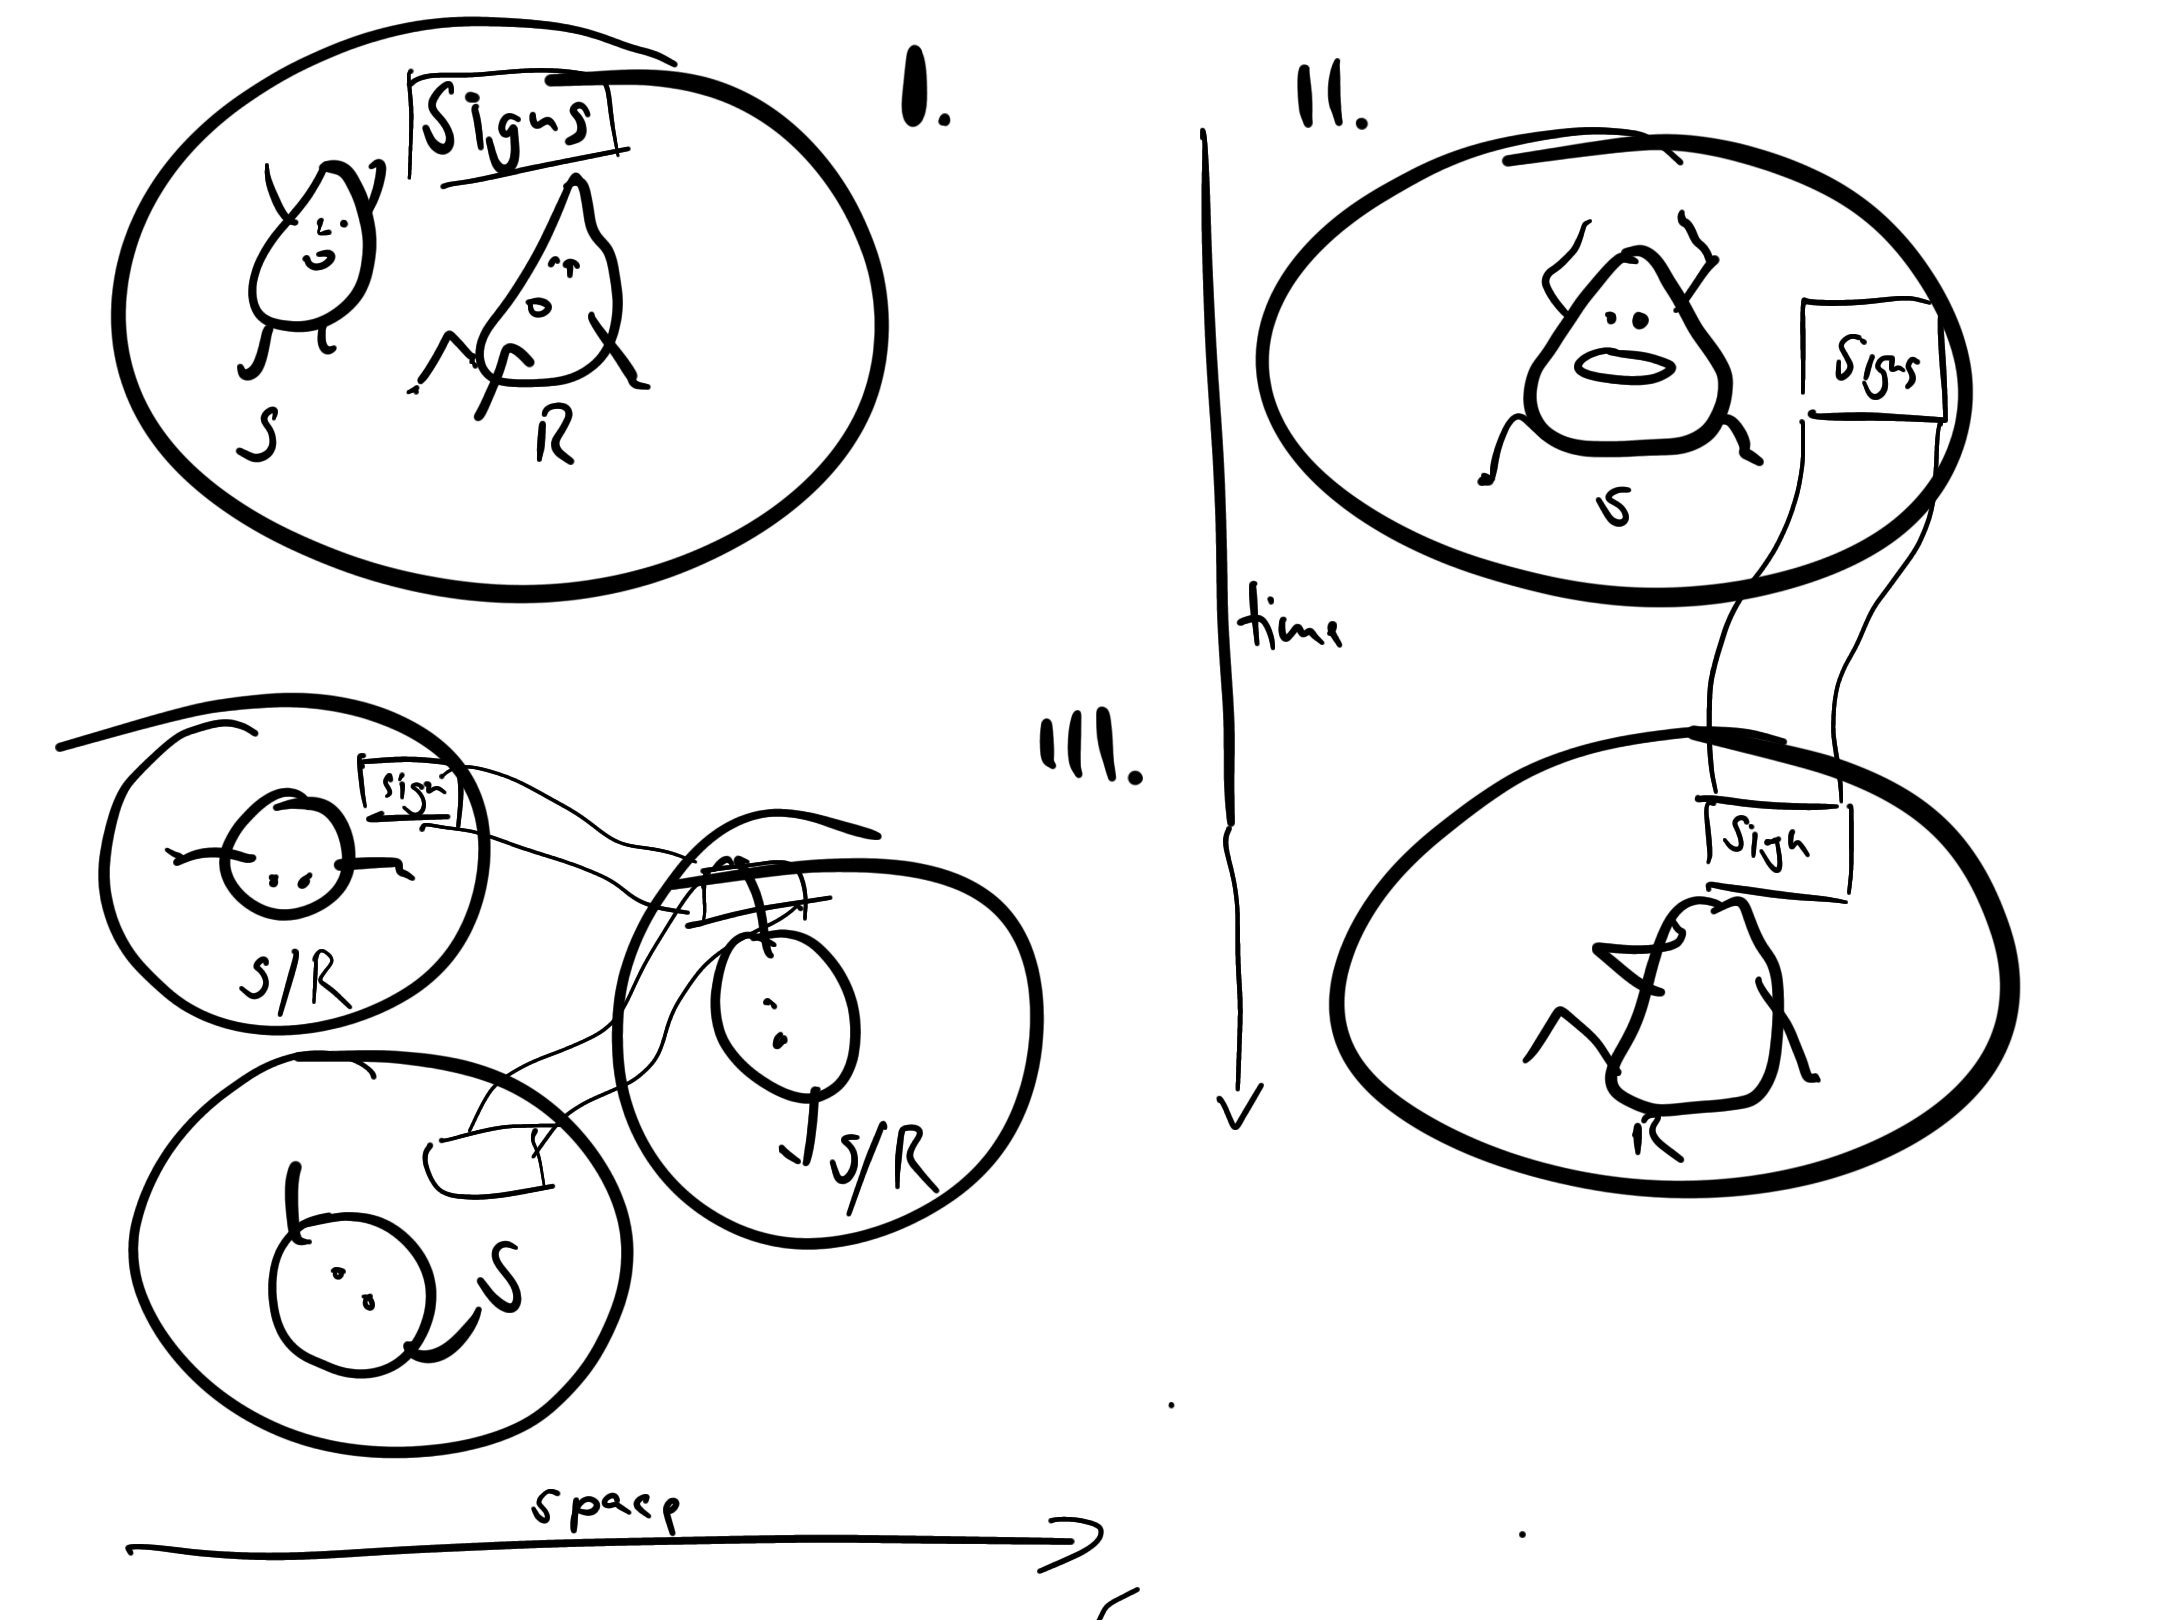 I.
Signs
S
R
II.
Signs
S
time
Sign
R
III.
Sign
S/R
S/R
S
space